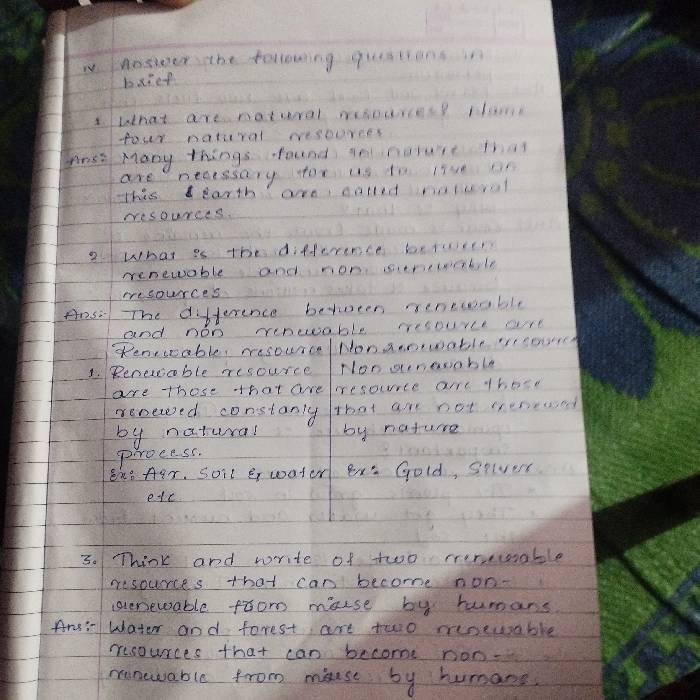 iv Answer the following questions in
brief
1 What are natural resources? Name
four natural resources
Ans:- Many things found in nature that
are necessary for us to live on
this Earth are called natural
resources.
2 What is the difference between
renewable and non renewable
resources
Ans:- The difference between renewable
and non renewable resource are
Renewable resource Non renewable resource
1. Renewable resource Non renewable
are those that are resource are those
renewed constanly that are not renewed
by natural by nature
process.
Ex: Air, Soil & water Ex: Gold, Silver.
etc
3. Think and write of two renewable
resources that can become non-
renewable from misuse by humans
Ans:- Water and forest are two renewable
resources that can become non-
renewable from misuse by humans.